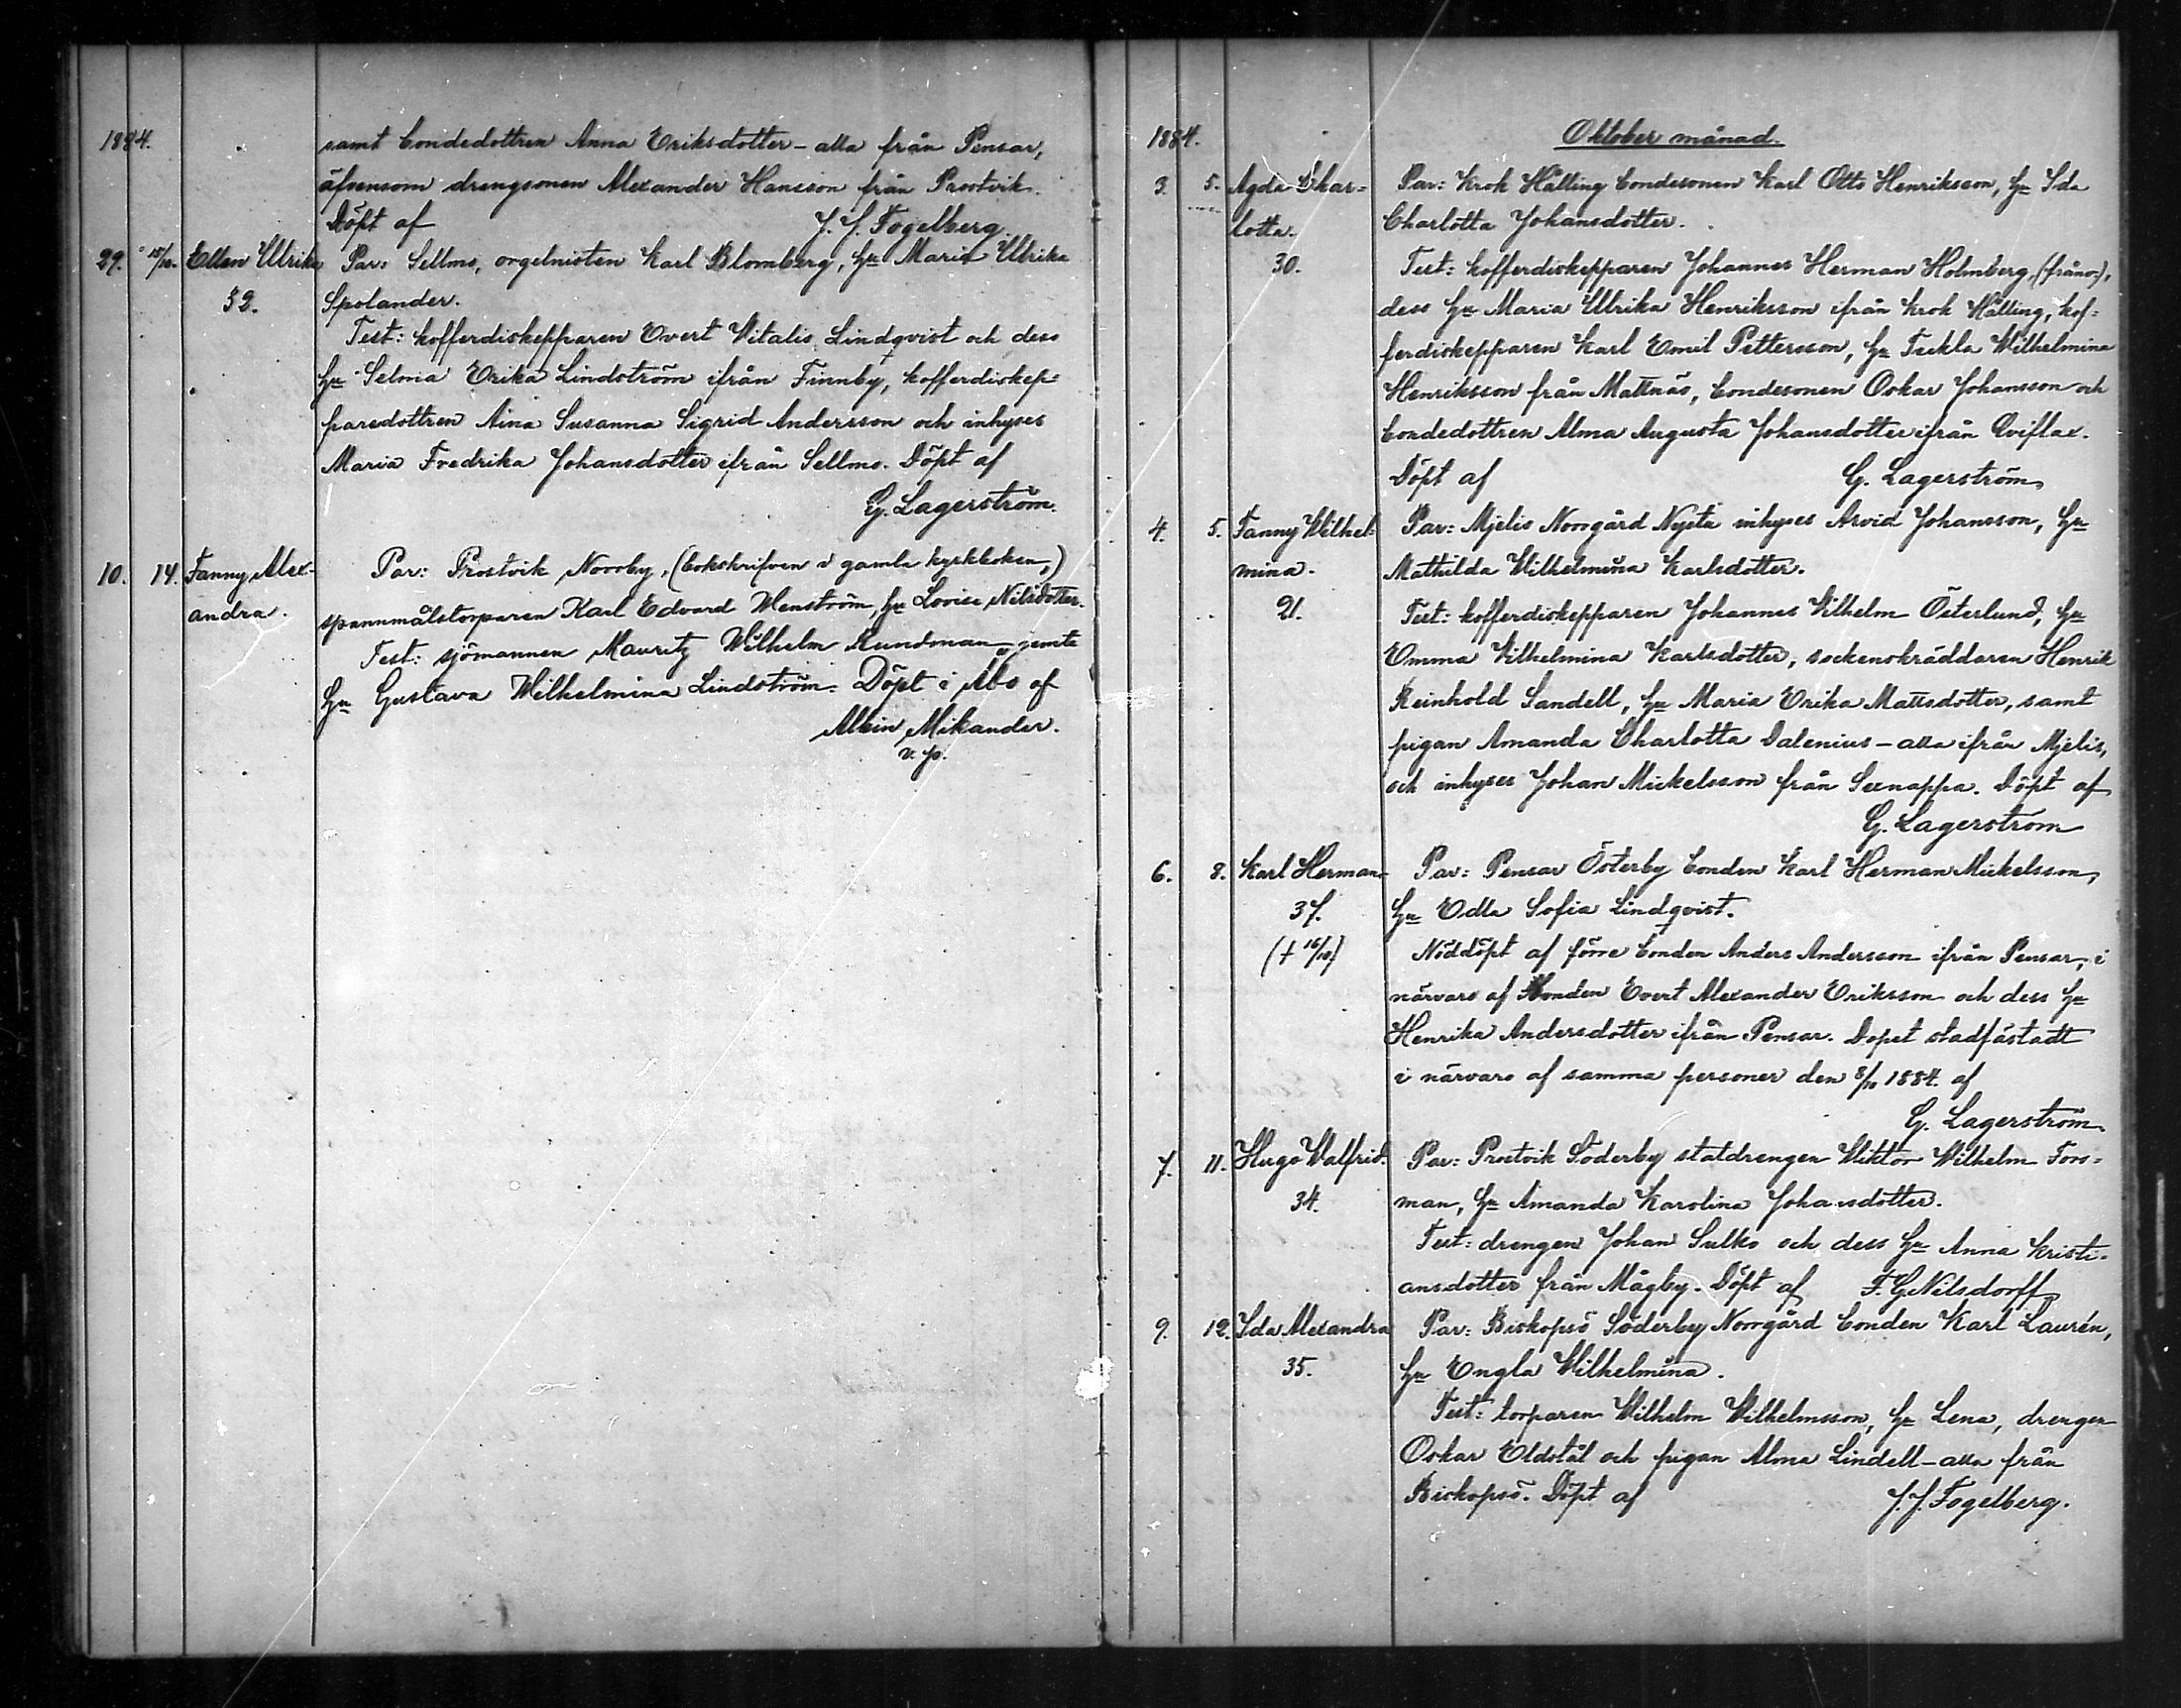 1884.
samt bondedottren Anna Eriksdotter – alla från Pensar,
äfvensom drengsonen Alexander Hansson från Prostvik.
Döpt af J. J. Fogelberg.
29. 15/10. Ellen Ulrika Par: Sellmo, orgelnisten Karl Blomberg, hu Maria Ulrika
32. Spolander.
Test: kofferdiskepparen Evert Vitalis Lindqvist och dess
hu Selma Erika Lindström ifrån Finnby, kofferdiskep-
paredottren Aina Susanna Sigrid Andersson och inhyses
Maria Fredrika Johansdotter ifrån Sellmo. Döpt af
G. Lagerström.
10. 14. Fanny Alex- Par: Prostvik Norrby, (bokskrifven i gamla kyrkboken,)
andra. spannmålstorparen Karl Edvard Wenström, hu Lovisa Nilsdotter.
Test: sjömannen Mauritz Wilhelm Rundman jemte
hu Gustava Wilhelmina Lindström. Döpt i Åbo af
Albin Mikander.
v. p.
1884.
Oktober månad.
3. 5. Agda Char- Par: Krok Hålling bondesonen Karl Otto Henriksson, hu Ida
lotta. Charlotta Johansdotter.
30. Test: kofferdiskepparen Johannes Herman Holmberg, (frånv.),
dess hu Maria Ulrika Henriksson ifrån Krok Hålling, kof-
ferdiskepparen Karl Emil Pettersson, hu Tekla Wilhelmina
Henriksson från Mattnäs, bondesonen Oskar Johansson och
bondedottren Alma Augusta Johansdotter ifrån Qviflax.
Döpt af G. Lagerström
4. 5. Fanny Wilhel- Par: Mjelis Norrgård Nysta inhyses Arvid Johansson, hu
mina. Mathilda Wilhelmina Karlsdotter.
21. Test: kofferdiskepparen Johannes Vilhelm Österlund, hu
Emma Vilhelmina Karlsdotter, sockenskräddaren Henrik
Reinhold Sandell, hu Maria Erika Mattsdotter, samt
pigan Amanda Charlotta Dalenius – alla ifrån Mjelis,
och inhyses Johan Mickelsson från Sexnappa. Döpt af
G. Lagerström
6. 8. Karl Herman. Par: Pensar Österby bonden Karl Herman Mickelsson,
37. hu Edla Sofia Lindqvist.
(† 16/10) Nöddöpt af förre bonden Anders Andersson ifrån Pensar, i
närvaro af bonden Evert Alexander Eriksson och dess hu
Henrika Andersdotter ifrån Pensar. Dopet stadfästadt
i närvaro af samma personer den 8/10 1884. af
G. Lagerström.
7. 11. Hugo Walfrid. Par: Prostvik Söderby statdrengen Wiktor Wilhelm Fors-
34. man, hu Amanda Karolina Johansdotter.
Test: drengen Johan Sulko och dess hu Anna Kristi-
ansdotter från Mågby. Döpt af F. G. Nilsdorff
9. 12. Ida Alexandra Par: Biskopsö Söderby Norrgård bonden Karl Laurén,
35. hu Engla Wilhelmina.
Test: torparen Wilhelm Wilhelmsson, hu Lena, drengen
Oskar Eldstål och pigan Alma Lindell – alla från
Biskopsö. Döpt af J. J. Fogelberg.